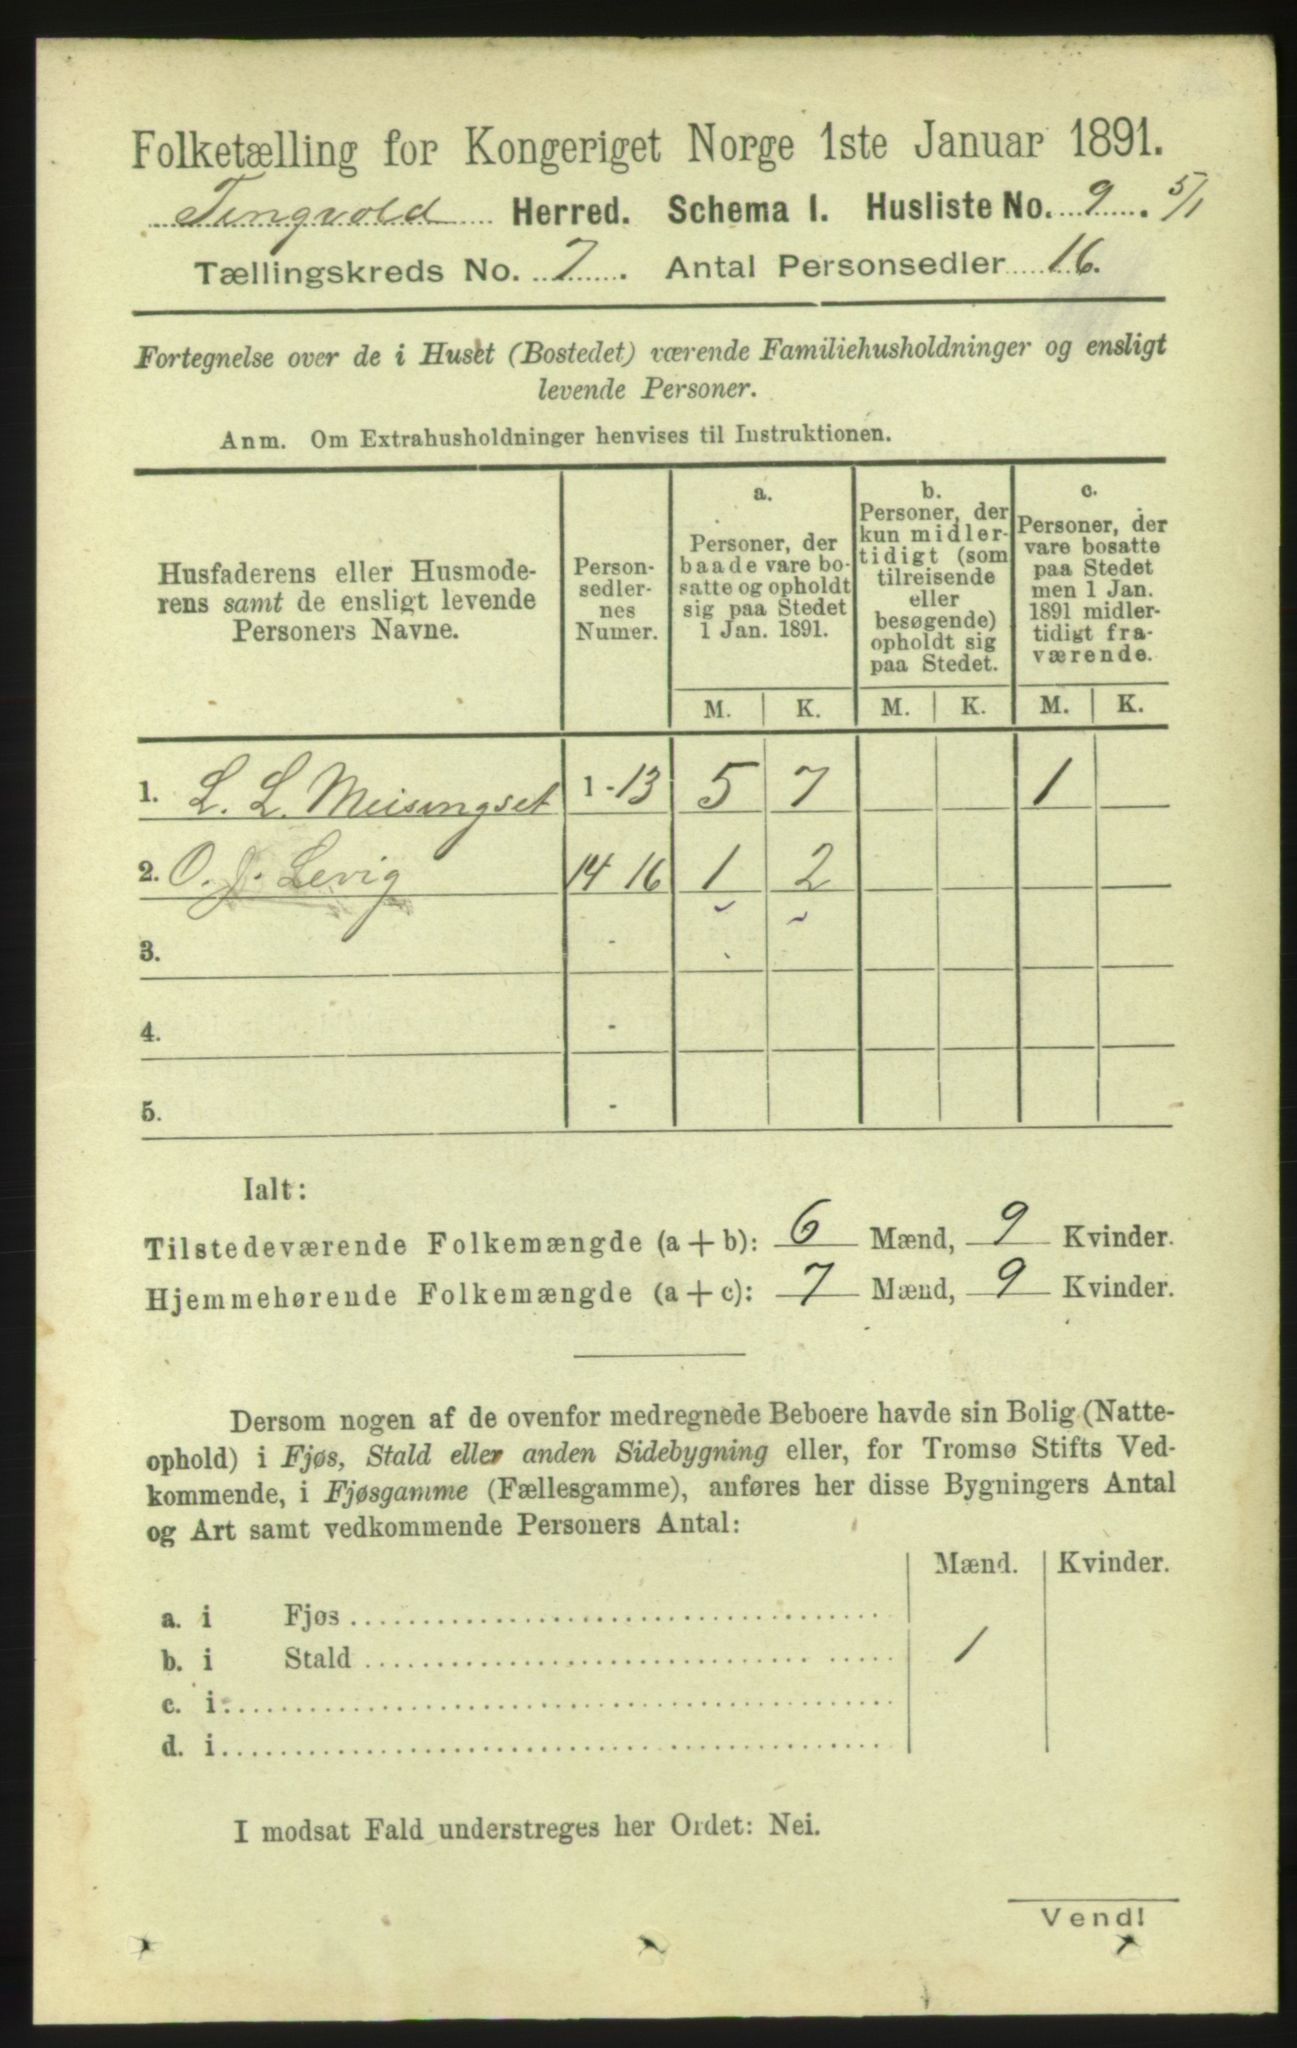 Folketælling for Kongeriget Norge 1ste Januar 1891.
Tingvold Herred. Schema I. Husliste No. 9. 5/1
Tællingskreds No. 7. Antal Personsedler 16.
Fortegnelse over de i Huset (Bostedet) værende Familiehusholdninger og ensligt
levende Personer.
Anm. Om Extrahusholdninger henvises til Instruktionen.
Husfaderens eller Husmode-
rens samt de ensligt levende
Personers Navne.
Person-
sedler-
nes
Numer.
a.
Personer, der
baade vare bo-
satte og opholdt
sig paa Stedet
1 Jan. 1891.
b.
Personer, der
kun midler-
tidigt (som
tilreisende
eller
besøgende)
opholdt sig
paa Stedet.
c.
Personer, der
vare bosatte
paa Stedet
men 1 Jan.
1891 midler-
tidigt fra-
værende.
M. K. M. K. M. K.
1. L. L. Meisingset 1-13 5 7 1
2. O. J. Levig 14 16 1 2
3. -
4. -
5. -
Ialt:
Tilstedeværende Folkemængde (a+b): 6 Mænd, 9 Kvinder.
Hjemmehørende Folkemængde (a+c): 7 Mænd, 9 Kvinder.
Dersom nogen af de ovenfor medregnede Beboere havde sin Bolig (Natte-
ophold) i Fjøs, Stald eller anden Sidebygning eller, for Tromsø Stifts Ved-
kommende, i Fjøsgamme (Fællesgamme), anføres her disse Bygningers Antal
og Art samt vedkommende Personers Antal:
Mænd. Kvinder.
a. i Fjøs
b. i Stald 1
c. i
d. i
I modsat Fald understreges her Ordet: Nei.
Vend!